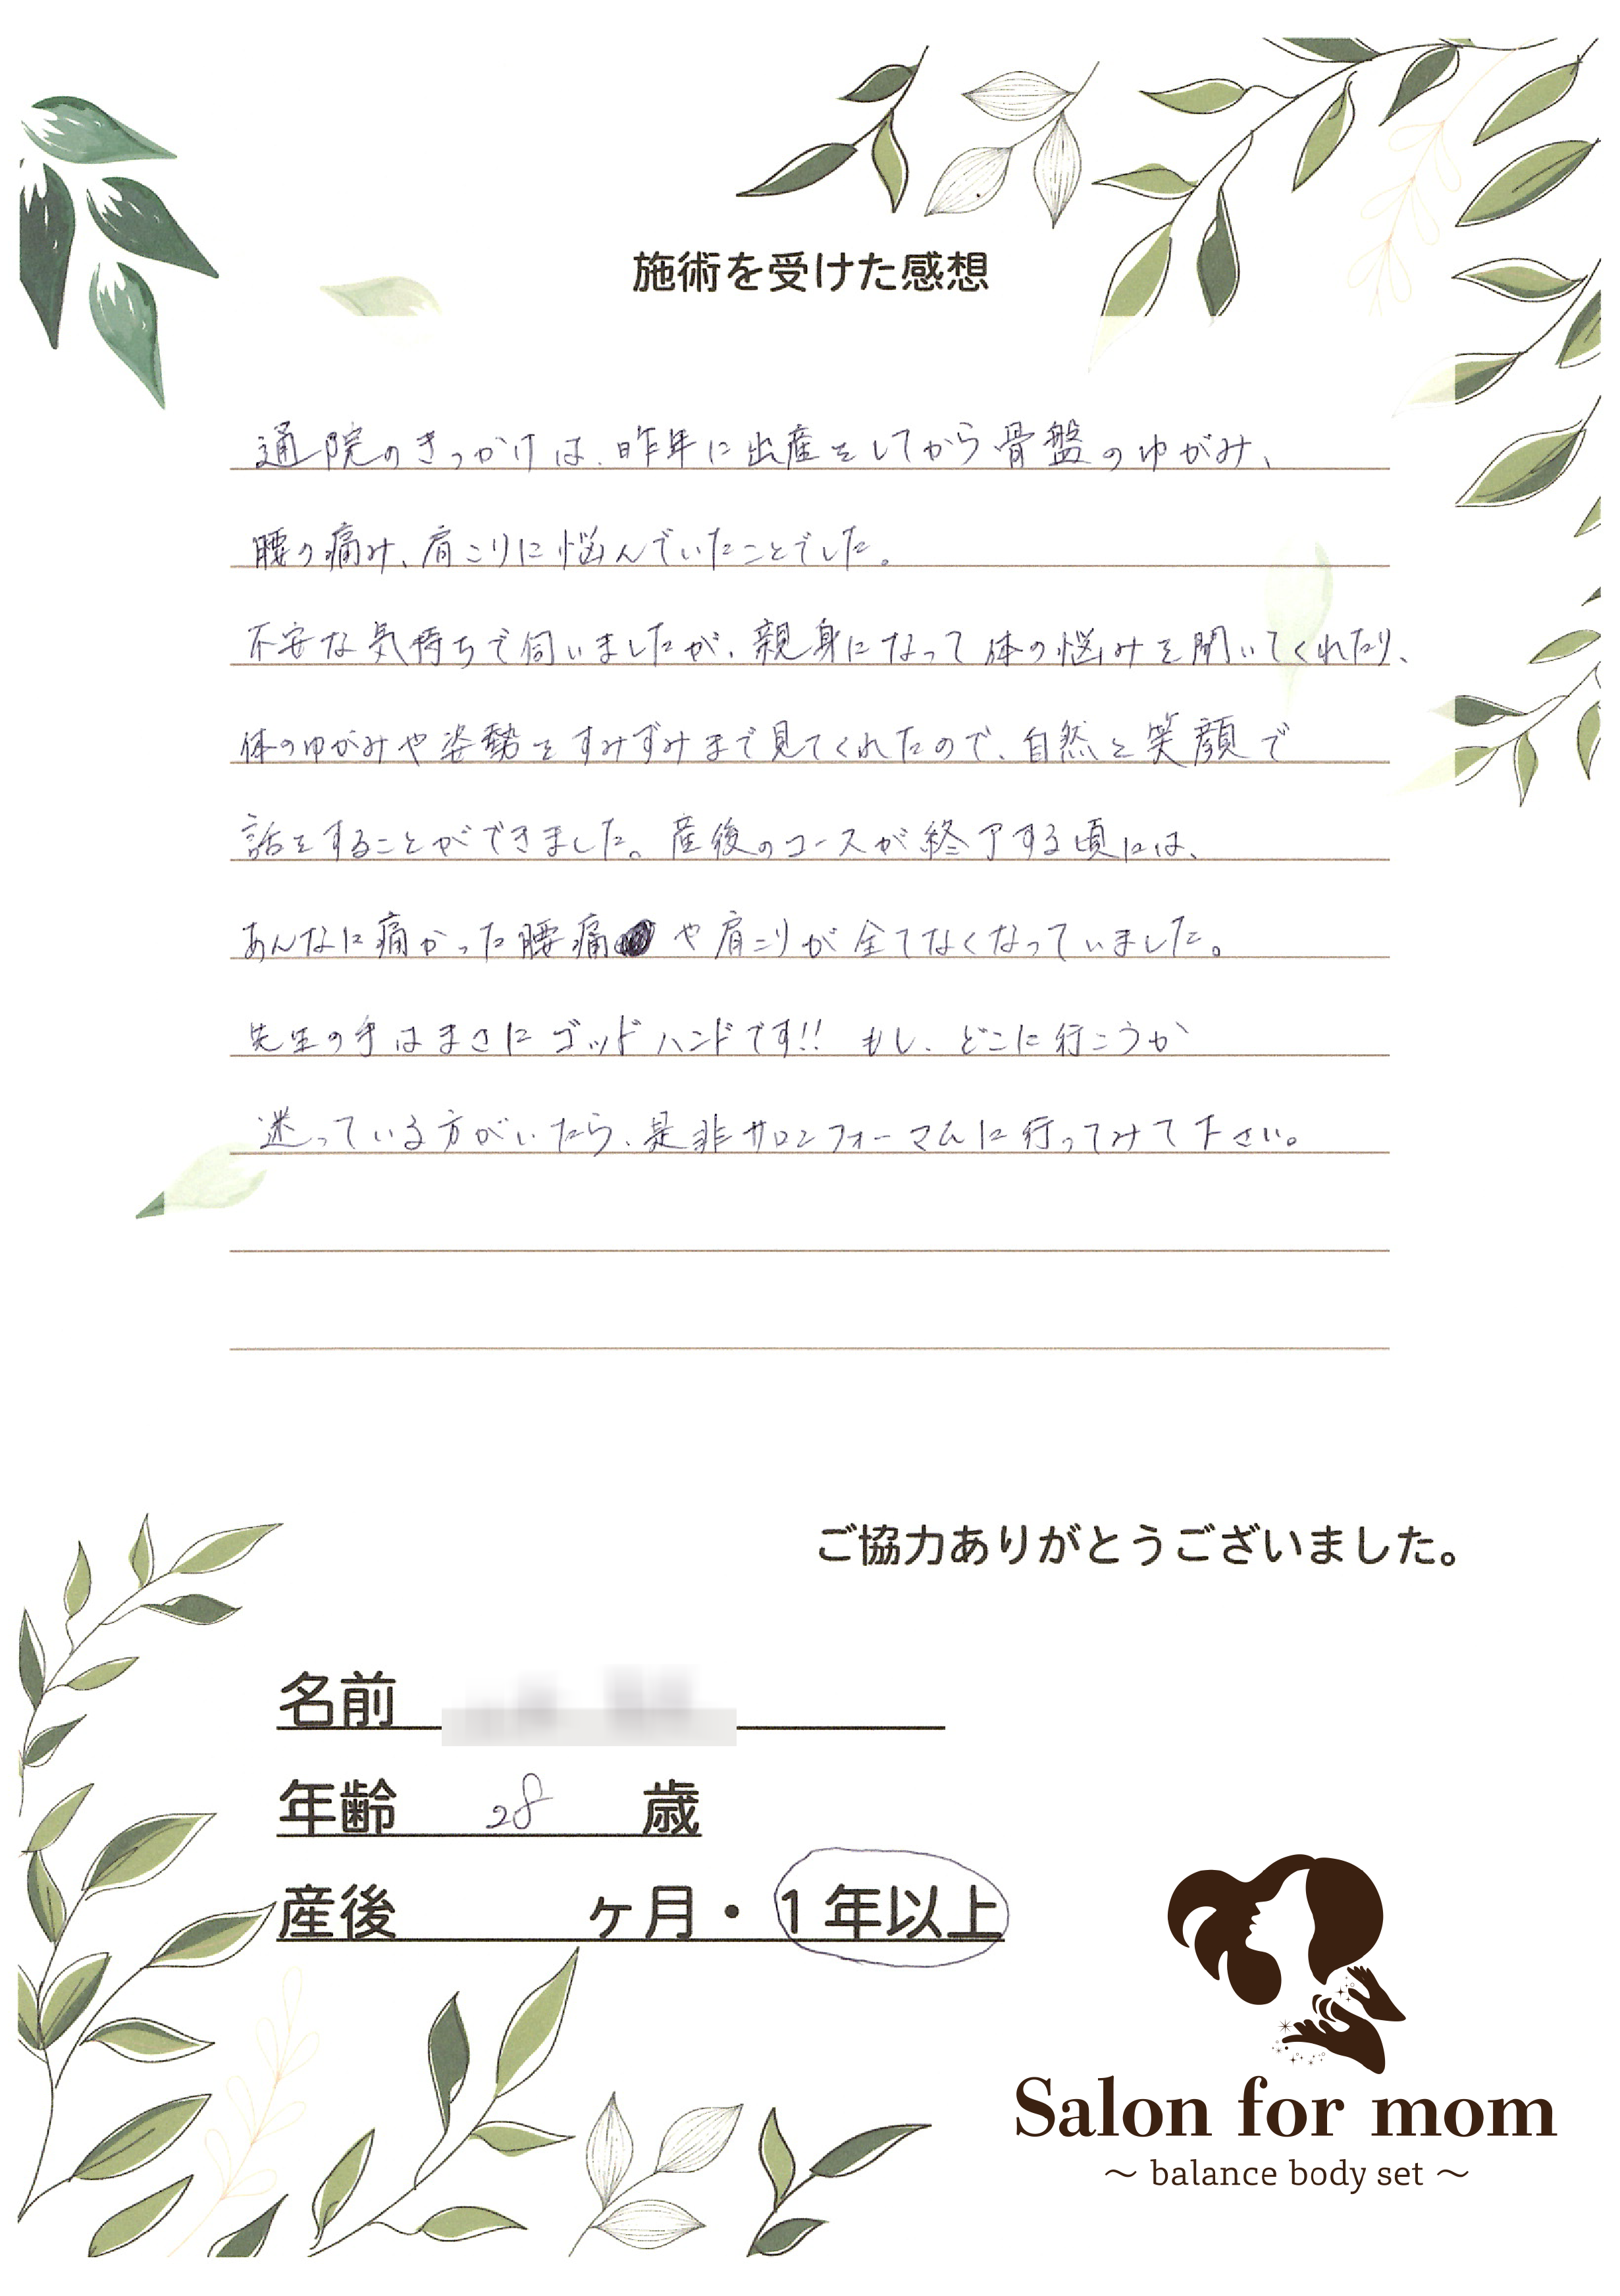 施術を受けた感想
通院のきっかけは、昨年に出産をしてから骨盤のゆがみ、
腰の痛み、肩こりに悩んでいたことでした。
不安な気持ちで伺いましたが、親身になって体の悩みを聞いてくれたり、
体のゆがみや姿勢をすみずみまで見てくれたので、自然と笑顔で
話をすることができました。産後のコースが終了する頃には、
あんなに痛かった腰痛や肩こりが全てなくなっていました。
先生の手はまさにゴッドハンドです!! もし、どこに行こうか
迷っている方がいたら、是非サロンフォーマムに行ってみて下さい。
ご協力ありがとうございました。
名前
年齢 28 歳
産後 ヶ月・1年以上
Salon for mom
～ balance body set ～